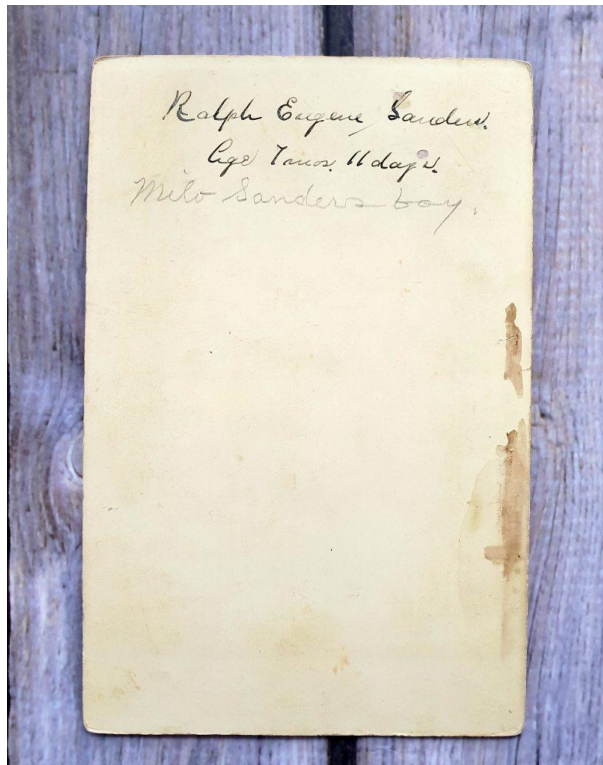 Ralph Eugene Sanders.
Age 7 mos. 11 days.
Milo Sanders boy.